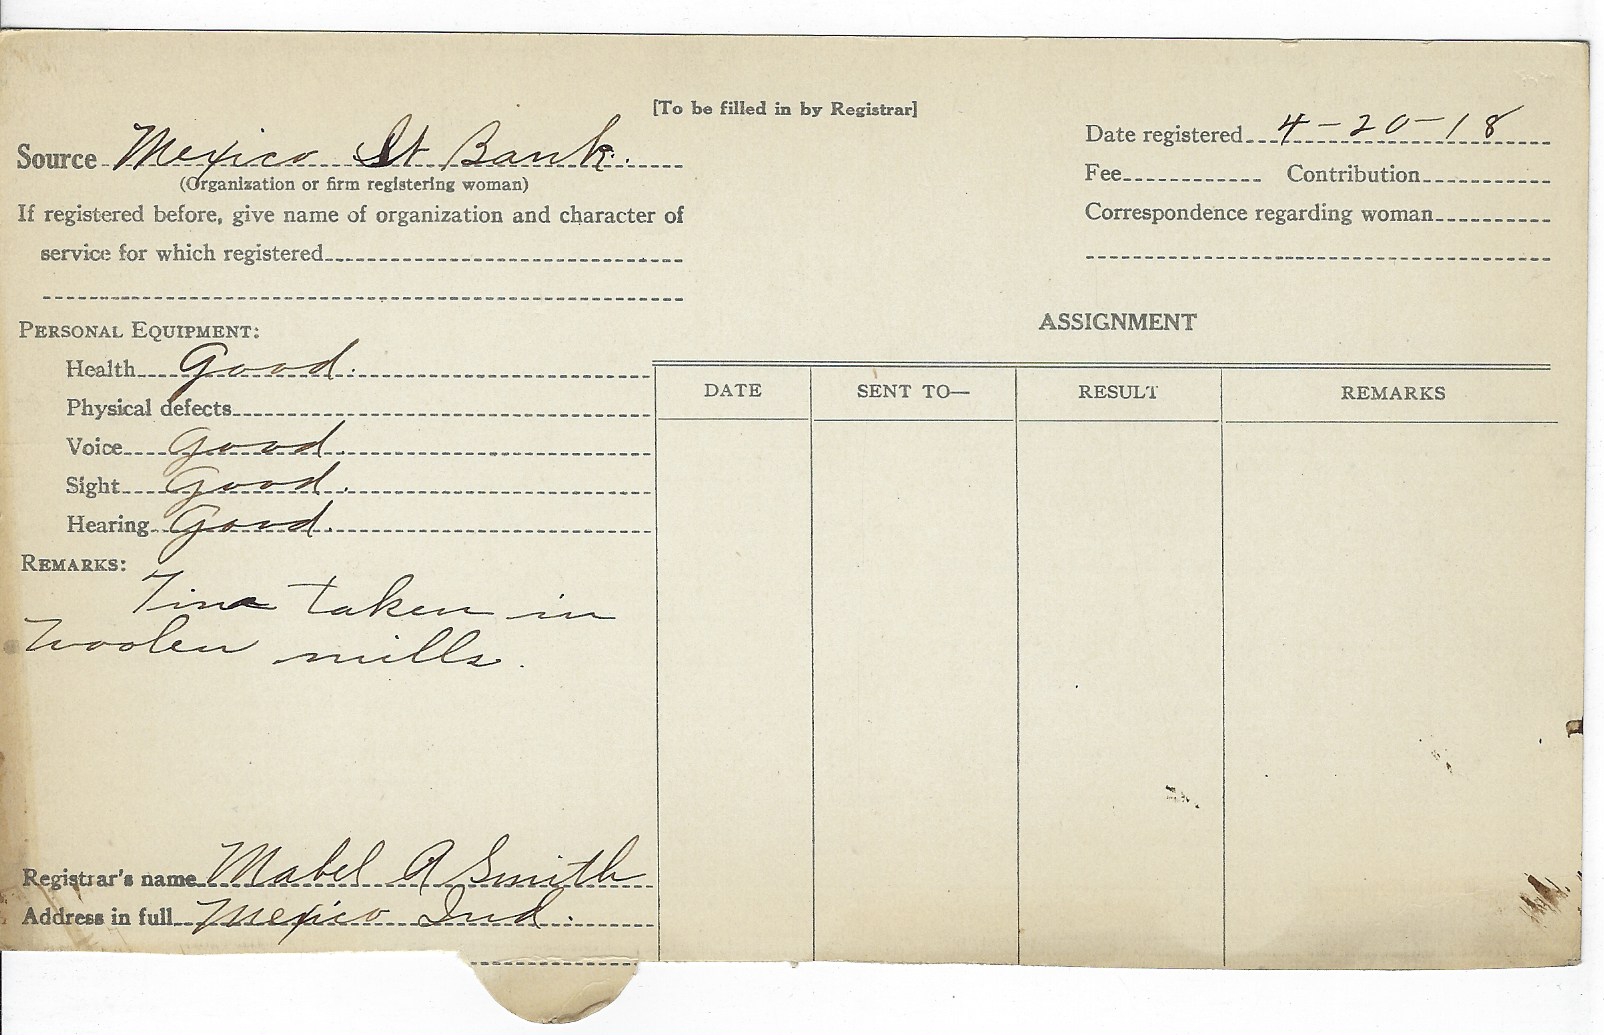 [To be filled in by Registrar]
Source Mexico St Bank.
(Organization or firm registering woman)
If registered before, give name of organization and character of
service for which registered
Date registered 4-20-18
Fee Contribution
Correspondence regarding woman
PERSONAL EQUIPMENT:
Health Good.
Physical defects
Voice Good.
Sight Good.
Hearing Good.
REMARKS:
Time taken in
Woolen mills.
Registrar's name Mabel A Smith
Address in full Mexico Ind.
ASSIGNMENT
DATE SENT TO— RESULT REMARKS